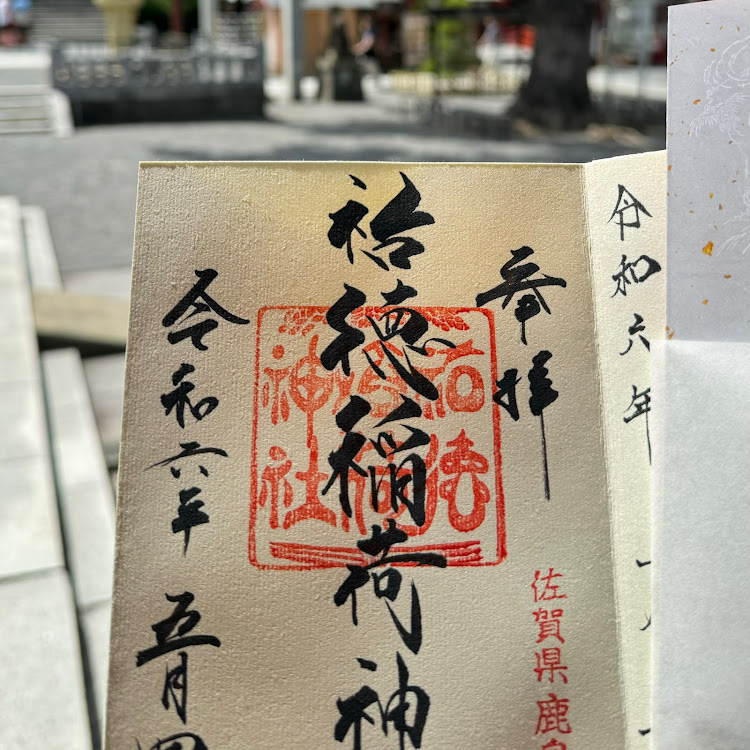 奉拝
佐賀県鹿
祐徳稲荷神
祐徳稲荷神社
令和六年五月四
令和六年